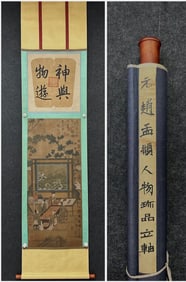 神與
物遊
元趙孟頫人物珎品立軸